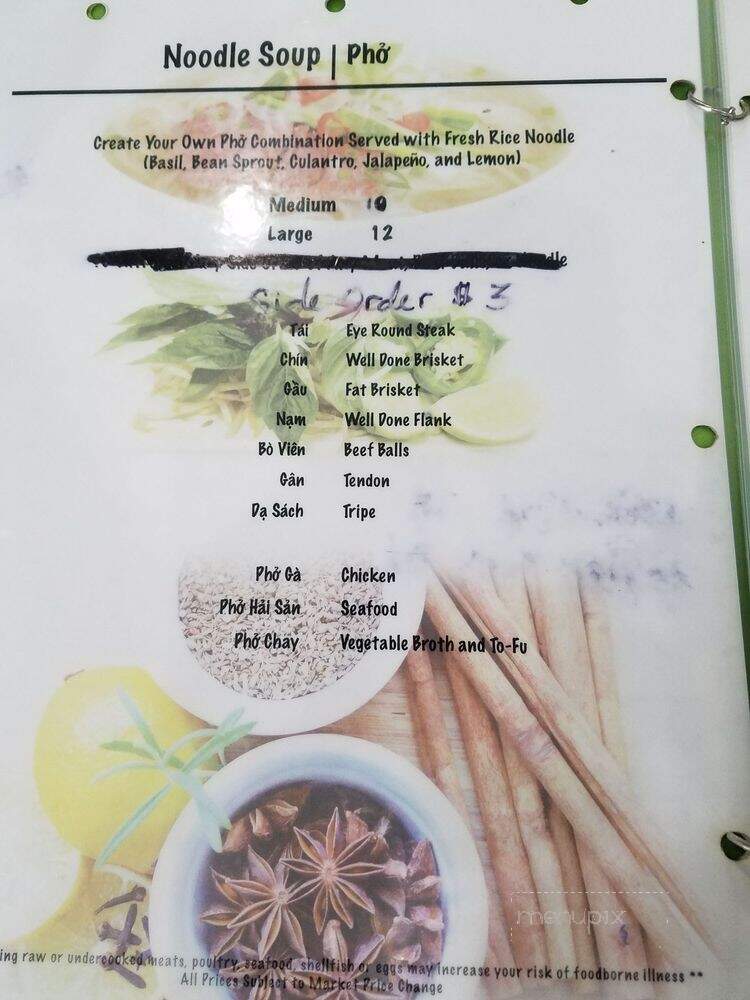 Noodle Soup | Phở
Create Your Own Phở Combination Served with Fresh Rice Noodle
(Basil, Bean Sprout, Culantro, Jalapeño, and Lemon)
Medium 10
Large 12
Side Order $3
Tái Eye Round Steak
Chín Well Done Brisket
Gầu Fat Brisket
Nạm Well Done Flank
Bò Viên Beef Balls
Gân Tendon
Dạ Sách Tripe
Phở Gà Chicken
Phở Hải Sản Seafood
Phở Chay Vegetable Broth and To-Fu
menupix
raw or undercooked meats, poultry, seafood, shellfish or eggs may increase your risk of foodborne illness **
All Prices Subject to Market Price Change